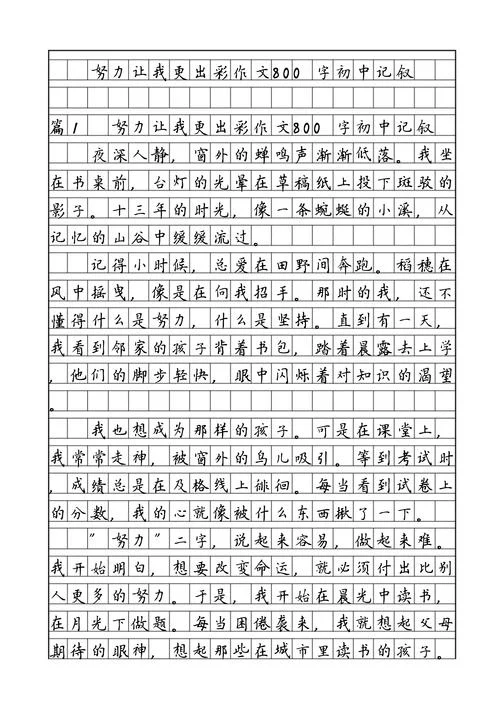 努力让我更出彩作文800 字初中记叙
篇1 努力让我更出彩作文800 字初中记叙
夜深人静，窗外的蝉鸣声渐渐低落。我坐
在书桌前，台灯的光晕在草稿纸上投下斑驳的
影子。十三年的时光，像一条蜿蜒的小溪，从
记忆的山谷中缓缓流过。
记得小时候，总爱在田野间奔跑。稻穗在
风中摇曳，像是在向我招手。那时的我，还不
懂得什么是努力，什么是坚持。直到有一天，
我看到邻家的孩子背着书包，踏着晨露去上学
，他们的脚步轻快，眼中闪烁着对知识的渴望
。
我也想成为那样的孩子。可是在课堂上，
我常常走神，被窗外的鸟儿吸引。等到考试时
，成绩总是在及格线上徘徊。每当看到试卷上
的分数，我的心就像被什么东西揪了一下。
"努力"二字，说起来容易，做起来难。
我开始明白，想要改变命运，就必须付出比别
人更多的努力。于是，我开始在晨光中读书，
在月光下做题。每当困倦袭来，我就想起父母
期待的眼神，想起那些在城市里读书的孩子。